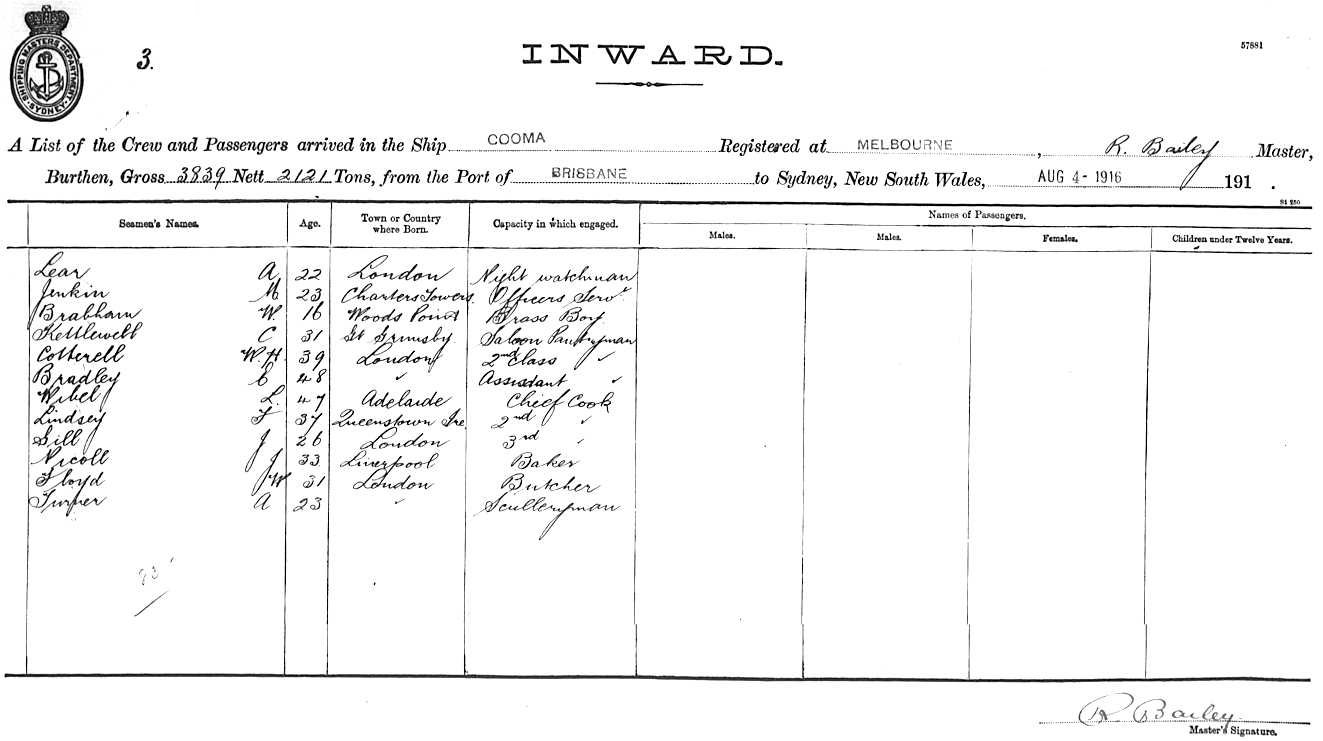 SHIPPING MASTERS DEPARTMENT. SYDNEY
3.
INWARD.
57881
A List of the Crew and Passengers arrived in the Ship COOMA Registered at MELBOURNE, R. Bailey Master,
Burthen, Gross 3839 Nett 2121 Tons, from the Port of BRISBANE to Sydney, New South Wales, AUG 4 - 1916 191 .
S4 250
Seamen's Names. Age. Town or Country where Born. Capacity in which engaged. Names of Passengers.
Males. Males. Females. Children under Twelve Years.
Lear A 22 London Night watchman
Jenkin M 23 Charters Towers Officers Servt
Brabham W. 16 Woods Point Brass Boy
Kettlewell C 31 Gt Grmsby Saloon Pantryman
Cotterell W.H. 39 London 2nd Class "
Bradley C 48 " Assistant "
Wibel L. 47 Adelaide Chief Cook
Lindsey F 37 Queenstown Ire 2nd "
Gill J 26 London 3rd "
Nicoll J 33 Liverpool Baker
Floyd JW 31 London Butcher
Turner A 23 " Sculleryman
R. Bailey
Master's Signature.